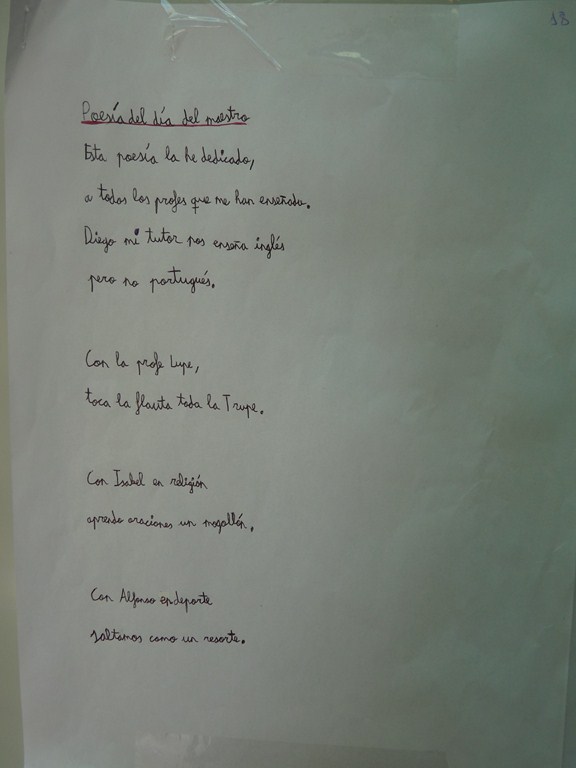 18
Poesía del día del maestro
Esta poesía la he dedicado,
a todos los profes que me han enseñado.
Diego mi tutor nos enseña inglés
pero no portugués.
Con la profe Lupe,
toca la flauta toda la Trupe.
Con Isabel en religión
aprendo oraciones un mogollón.
Con Alfonso en deporte
saltamos como un resorte.